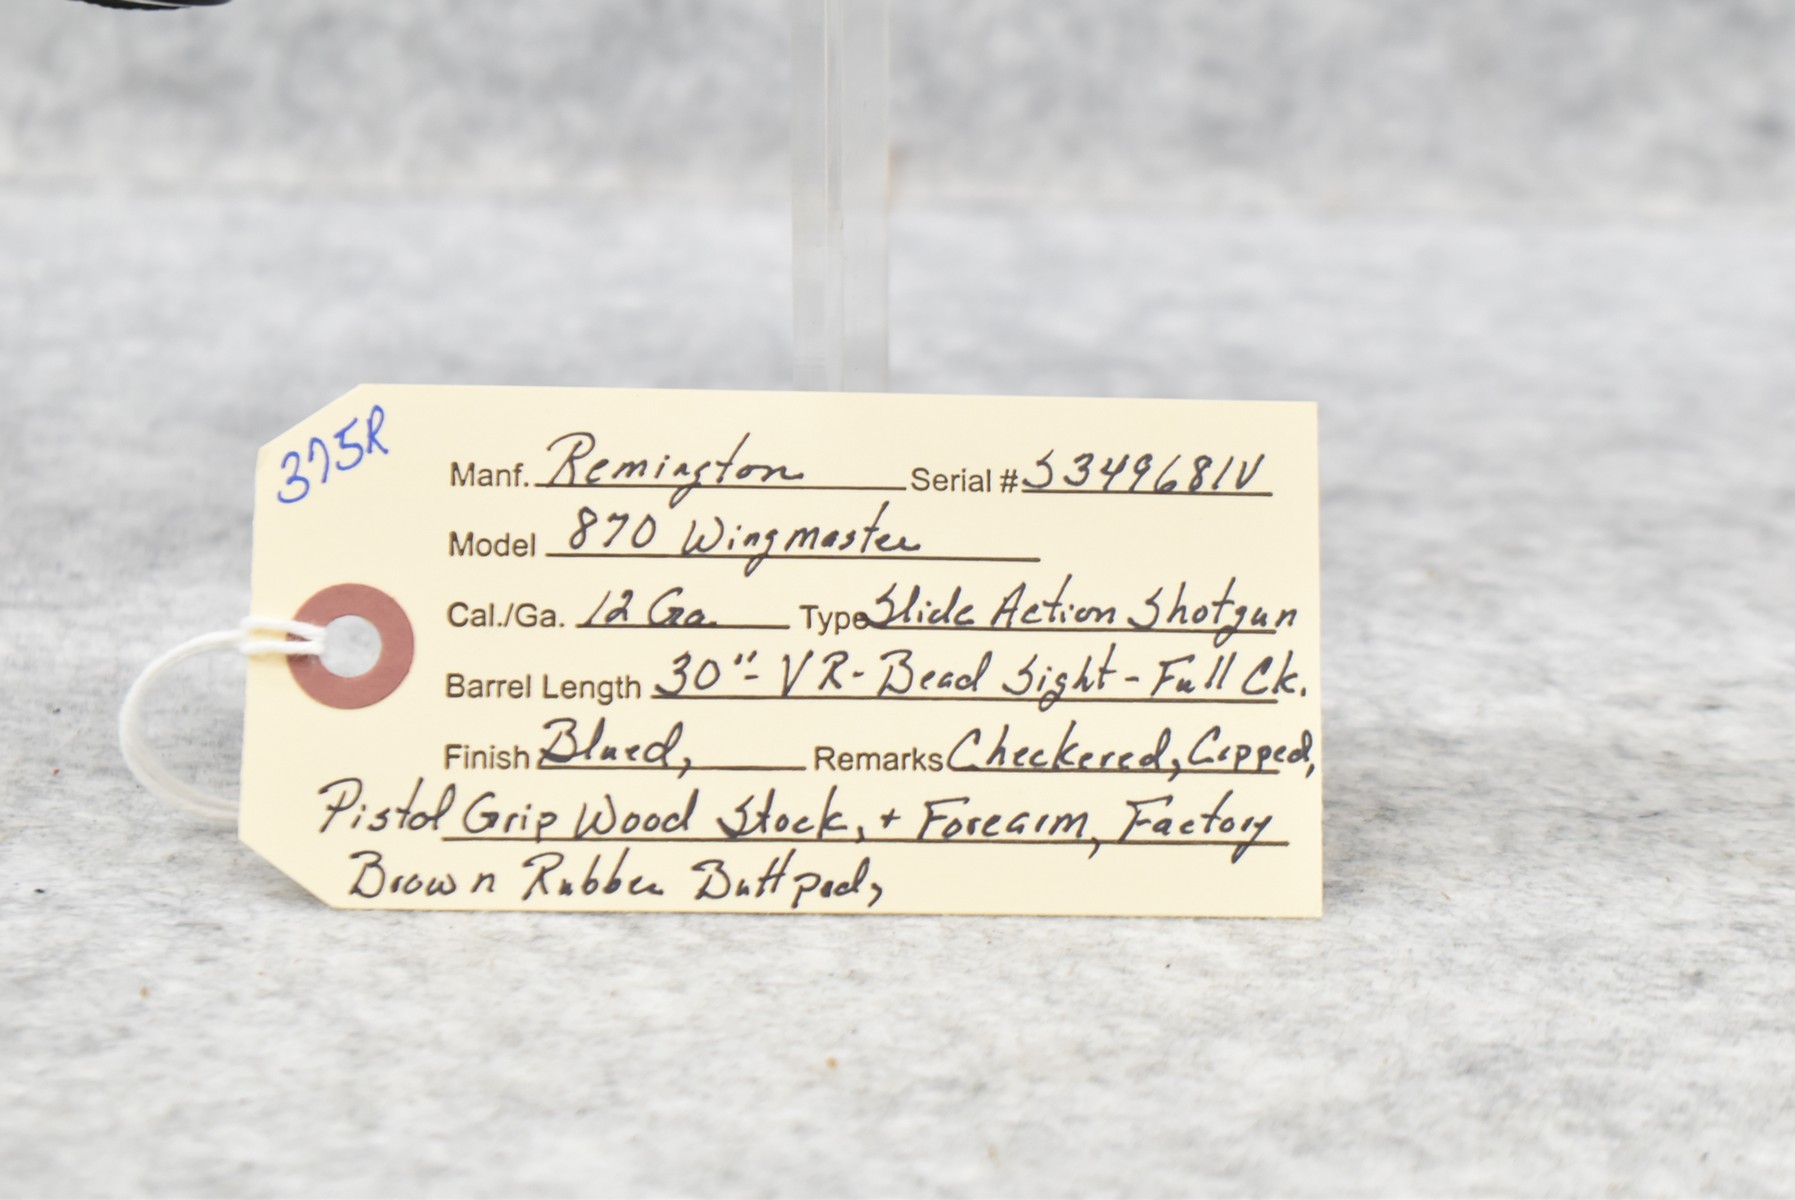 375R
Manf. Remington Serial # S349681V
Model 870 Wingmaster
Cal./Ga. 12 Ga. Type Slide Action Shotgun
Barrel Length 30"- VR- Bead Sight - Full Ck.
Finish Blued, Remarks Checkered, Capped,
Pistol Grip Wood Stock, + Forearm, Factory
Brown Rubber Buttpad,